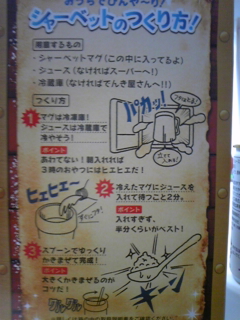 おうちでひんや〜り!
シャーベットのつくり方!
用意するもの
・シャーベットマグ(この中に入ってるよ)
・ジュース(なければスーパーへ!)
・冷蔵庫(なければでんき屋さんへ!!)
つくり方
パカッ!
1 マグは冷凍庫!
ジュースは冷蔵庫で
冷やそう!
ポイント
あわてない!朝入れれば
3時のおやつにはヒエヒエだ!
ヒエヒエ〜
2 冷えたマグにジュースを
入れて待つこと2分。
ポイント
入れすぎず、
半分くらいがベスト!
3 スプーンでゆっくり
かきまぜて完成!
ポイント
大きくかきまぜるのが
コツだ!
キーン